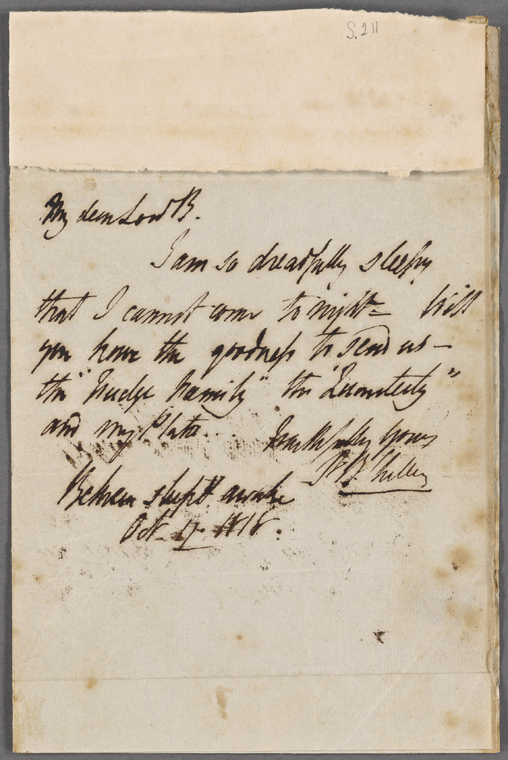 S. 211
My dear Lord B.
I am so dreadfully sleepy
that I cannot come to night – Will
you have the goodness to send us –
the "Fudge Family" the "Quarterly"
and my Plato.
Faithfully yours
P B Shelley
Between sleep & awake
Oct. 17. 1818.